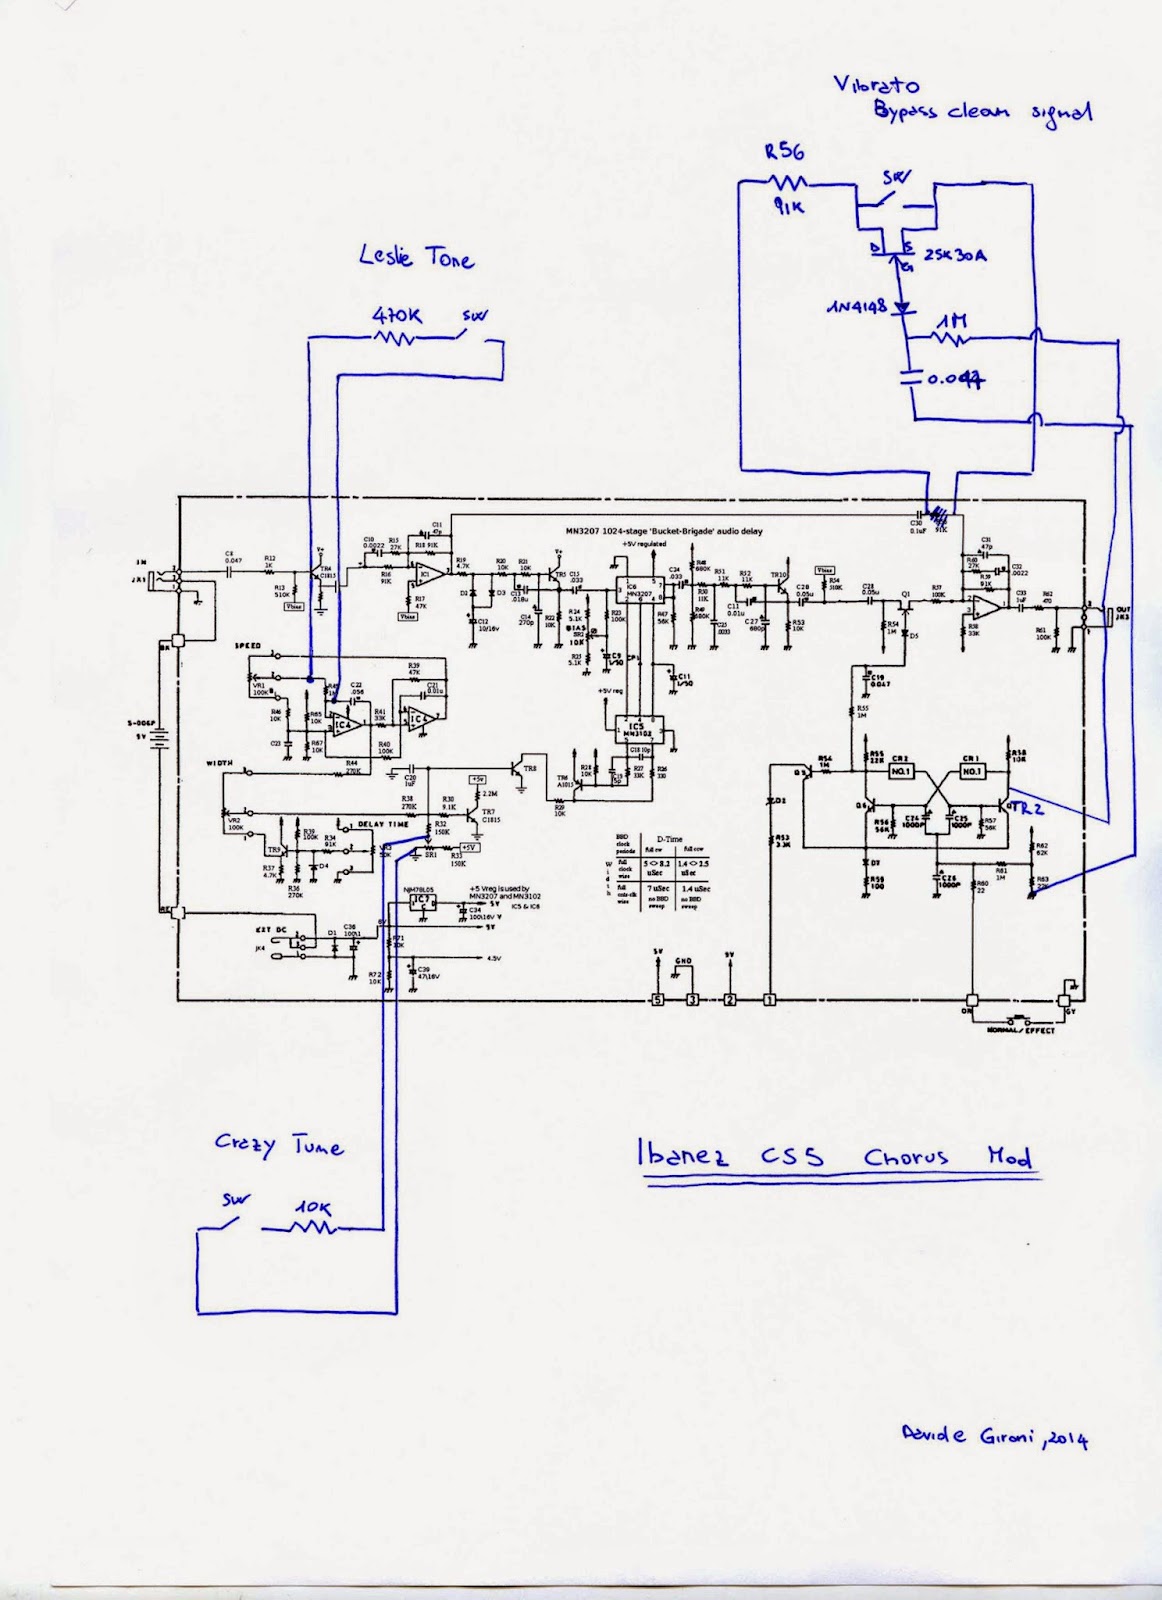 Vibrato
Bypass clean signal
R56
91K
SW
D S
G
2SK30A
1N4148
1M
0.047
Leslie Tone
470K SW
MN3207 1024-stage 'Bucket-Brigade' audio delay
+5V regulated
IN
JK1
C8
0.047
R12
1K
R13
510K
Vbias
TR4
C1815
V+
C10
0.0022
R15
27K
C11
47p
R18 91K
R16
91K
IC1
R17
47K
Vbias
R19
4.7K
D2
D3
C12
10/16V
R20
10K
R21
10K
C13
.018u
C14
270p
TR5
V+
R22
10K
C15
.033
R24
5.1K
BIAS
SR2
10K
R25
5.1K
R23
100K
C9
1/50
IC6
MN3207
CP1
R47
56K
C11
1/50
C24
.033
R48
680K
R49
680K
R50
11K
R51
11K
R52
11K
C25
.0033
C11
0.01u
C27
680p
TR10
R53
10K
C28
0.05u
Vbias
R54
510K
C28
0.05u
Q1
R54
1M
D5
R57
100K
C30
0.1uF
91K
C31
47p
R60
27K
R59
91K
C32
.0022
R58
33K
C33
1uF
R62
470
R61
100K
OUT
JK3
SPEED
VR1
100K
R46
10K
C23
R65
10K
R67
10K
1M
C22
.056
IC4
R41
33K
R39
47K
C21
0.01u
IC4
R40
100K
R44
270K
+5V reg
IC5
MN3102
C18 10p
R27
33K
R26
330
R28
10K
TR6
A1015
R29
10K
TR8
C20
1uF
+5v
2.2M
TR7
C1815
R38
270K
R30
9.1K
R32
150K
SR1
R33
150K
+5V
WIDTH
VR2
100K
DELAY TIME
TR9
R39
100K
R34
91K
D4
R37
4.7K
R36
270K
S-006P
9V
EXT DC
JK4
D1
NJM78L05
IC7
C34
100\16V
5V
+5 Vreg is used by
MN3207 and MN3102
IC5 & IC6
9V
R72
10K
4.5V
C39
47\16V
BBD
clock
periods
D-Time
full ccw
full cw
5<>8.2
uSec
1.4<>2.5
uSec
7 uSec
no BBD
sweep
1.4 uSec
no BBD
sweep
C19
0.047
R55
1M
R54
1M
R55
22K
CR2
NO.1
CR1
NO.1
R58
10K
TR2
Q6
R56
56K
C24
1000P
C25
1000P
R57
56K
D7
R59
100
C26
1000P
R60
22
R61
1M
R62
62K
R63
22K
R53
3.3K
5V
GND
9V
5
3
2
1
GY
NORMAL/EFFECT
Crazy Tune
SW
10K
Ibanez CS5 Chorus Mod
Davide Gironi, 2014